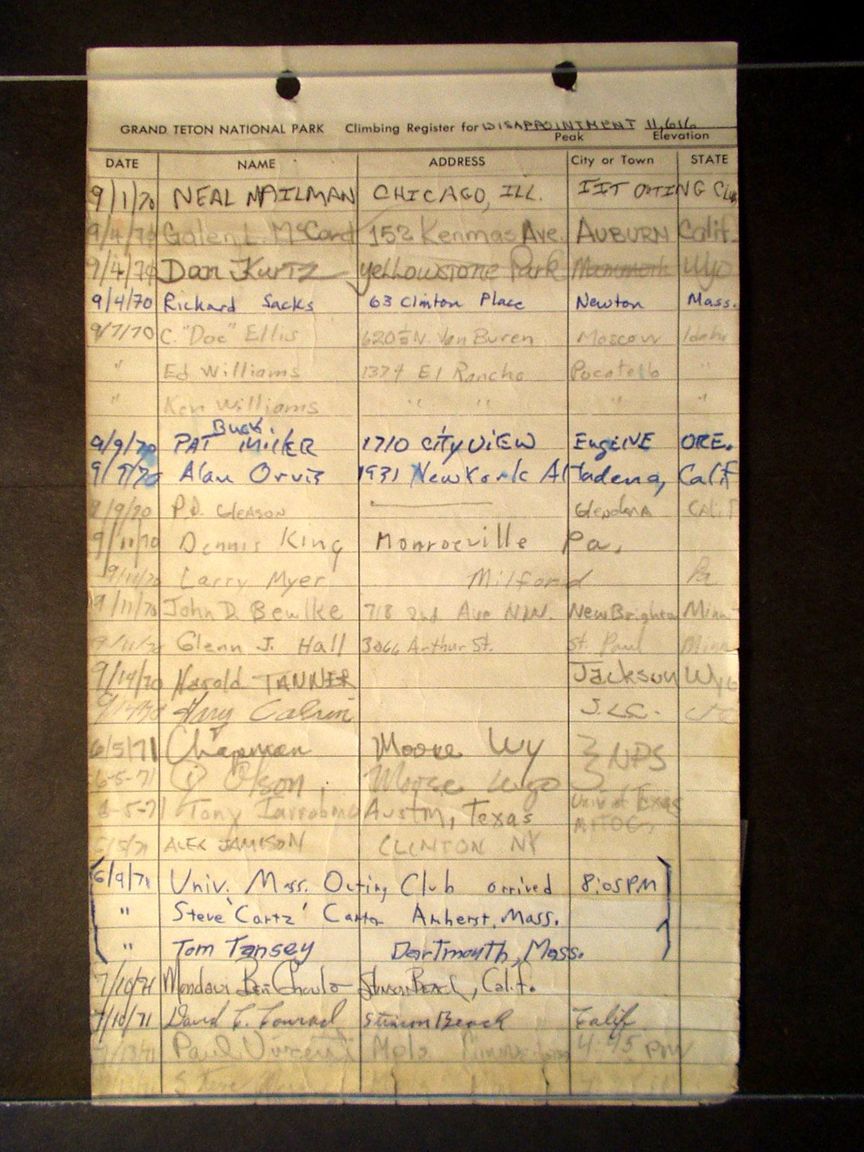 GRAND TETON NATIONAL PARK Climbing Register for DISAPPOINTMENT 11,616
Peak Elevation
DATE NAME ADDRESS City or Town STATE
9/1/70 NEAL MAILMAN CHICAGO, ILL. IIT OUTING Club
9/4/70 Galen L. McCord 152 Kenmas Ave. AUBURN Calif.
9/4/70 Dan Kurtz Yellowstone Park Mammoth Wyo
9/4/70 Richard Sacks 63 Clinton Place Newton Mass.
9/7/70 C. "Doc" Ellis 620½ N. Van Buren Moscow Idaho
" Ed Williams 1374 El Rancho Pocatello "
" Ken Williams " "
Buck
9/9/70 PAT MILLER 1710 CITY VIEW EugENE ORE.
9/9/70 Alan Orvis 1931 New York Altadena, Calif
9/9/70 P.D. GLEASON Glendora CALIF
9/11/70 Dennis King Monroeville Pa.
9/11/70 Larry Myer Milford Pa
9/11/70 John D. Beulke 718 2nd Ave N.W. New Brighton Minn
9/11/70 Glenn J. Hall 3066 Arthur St. St. Paul Minn
9/14/70 Harold TANNER Jackson Wyo
Calvin
6/5/71 Chapman Moose Wy } NPS
6-5-71 Olson Moose Wyo
6-5-71 Tony Austin, Texas Univ of Texas
6/5/71 ALEX JAMISON CLINTON NY
6/9/71 Univ. Mass. Outing Club arrived 8:05 PM
" Steve 'Cartz' Carter Amherst, Mass.
" Tom Tansey Dartmouth, Mass.
7/10/71 Stinson Beach, Calif.
7/10/71 David C. Conrad Stinson Beach Calif
Paul 4:45 PM
Steve